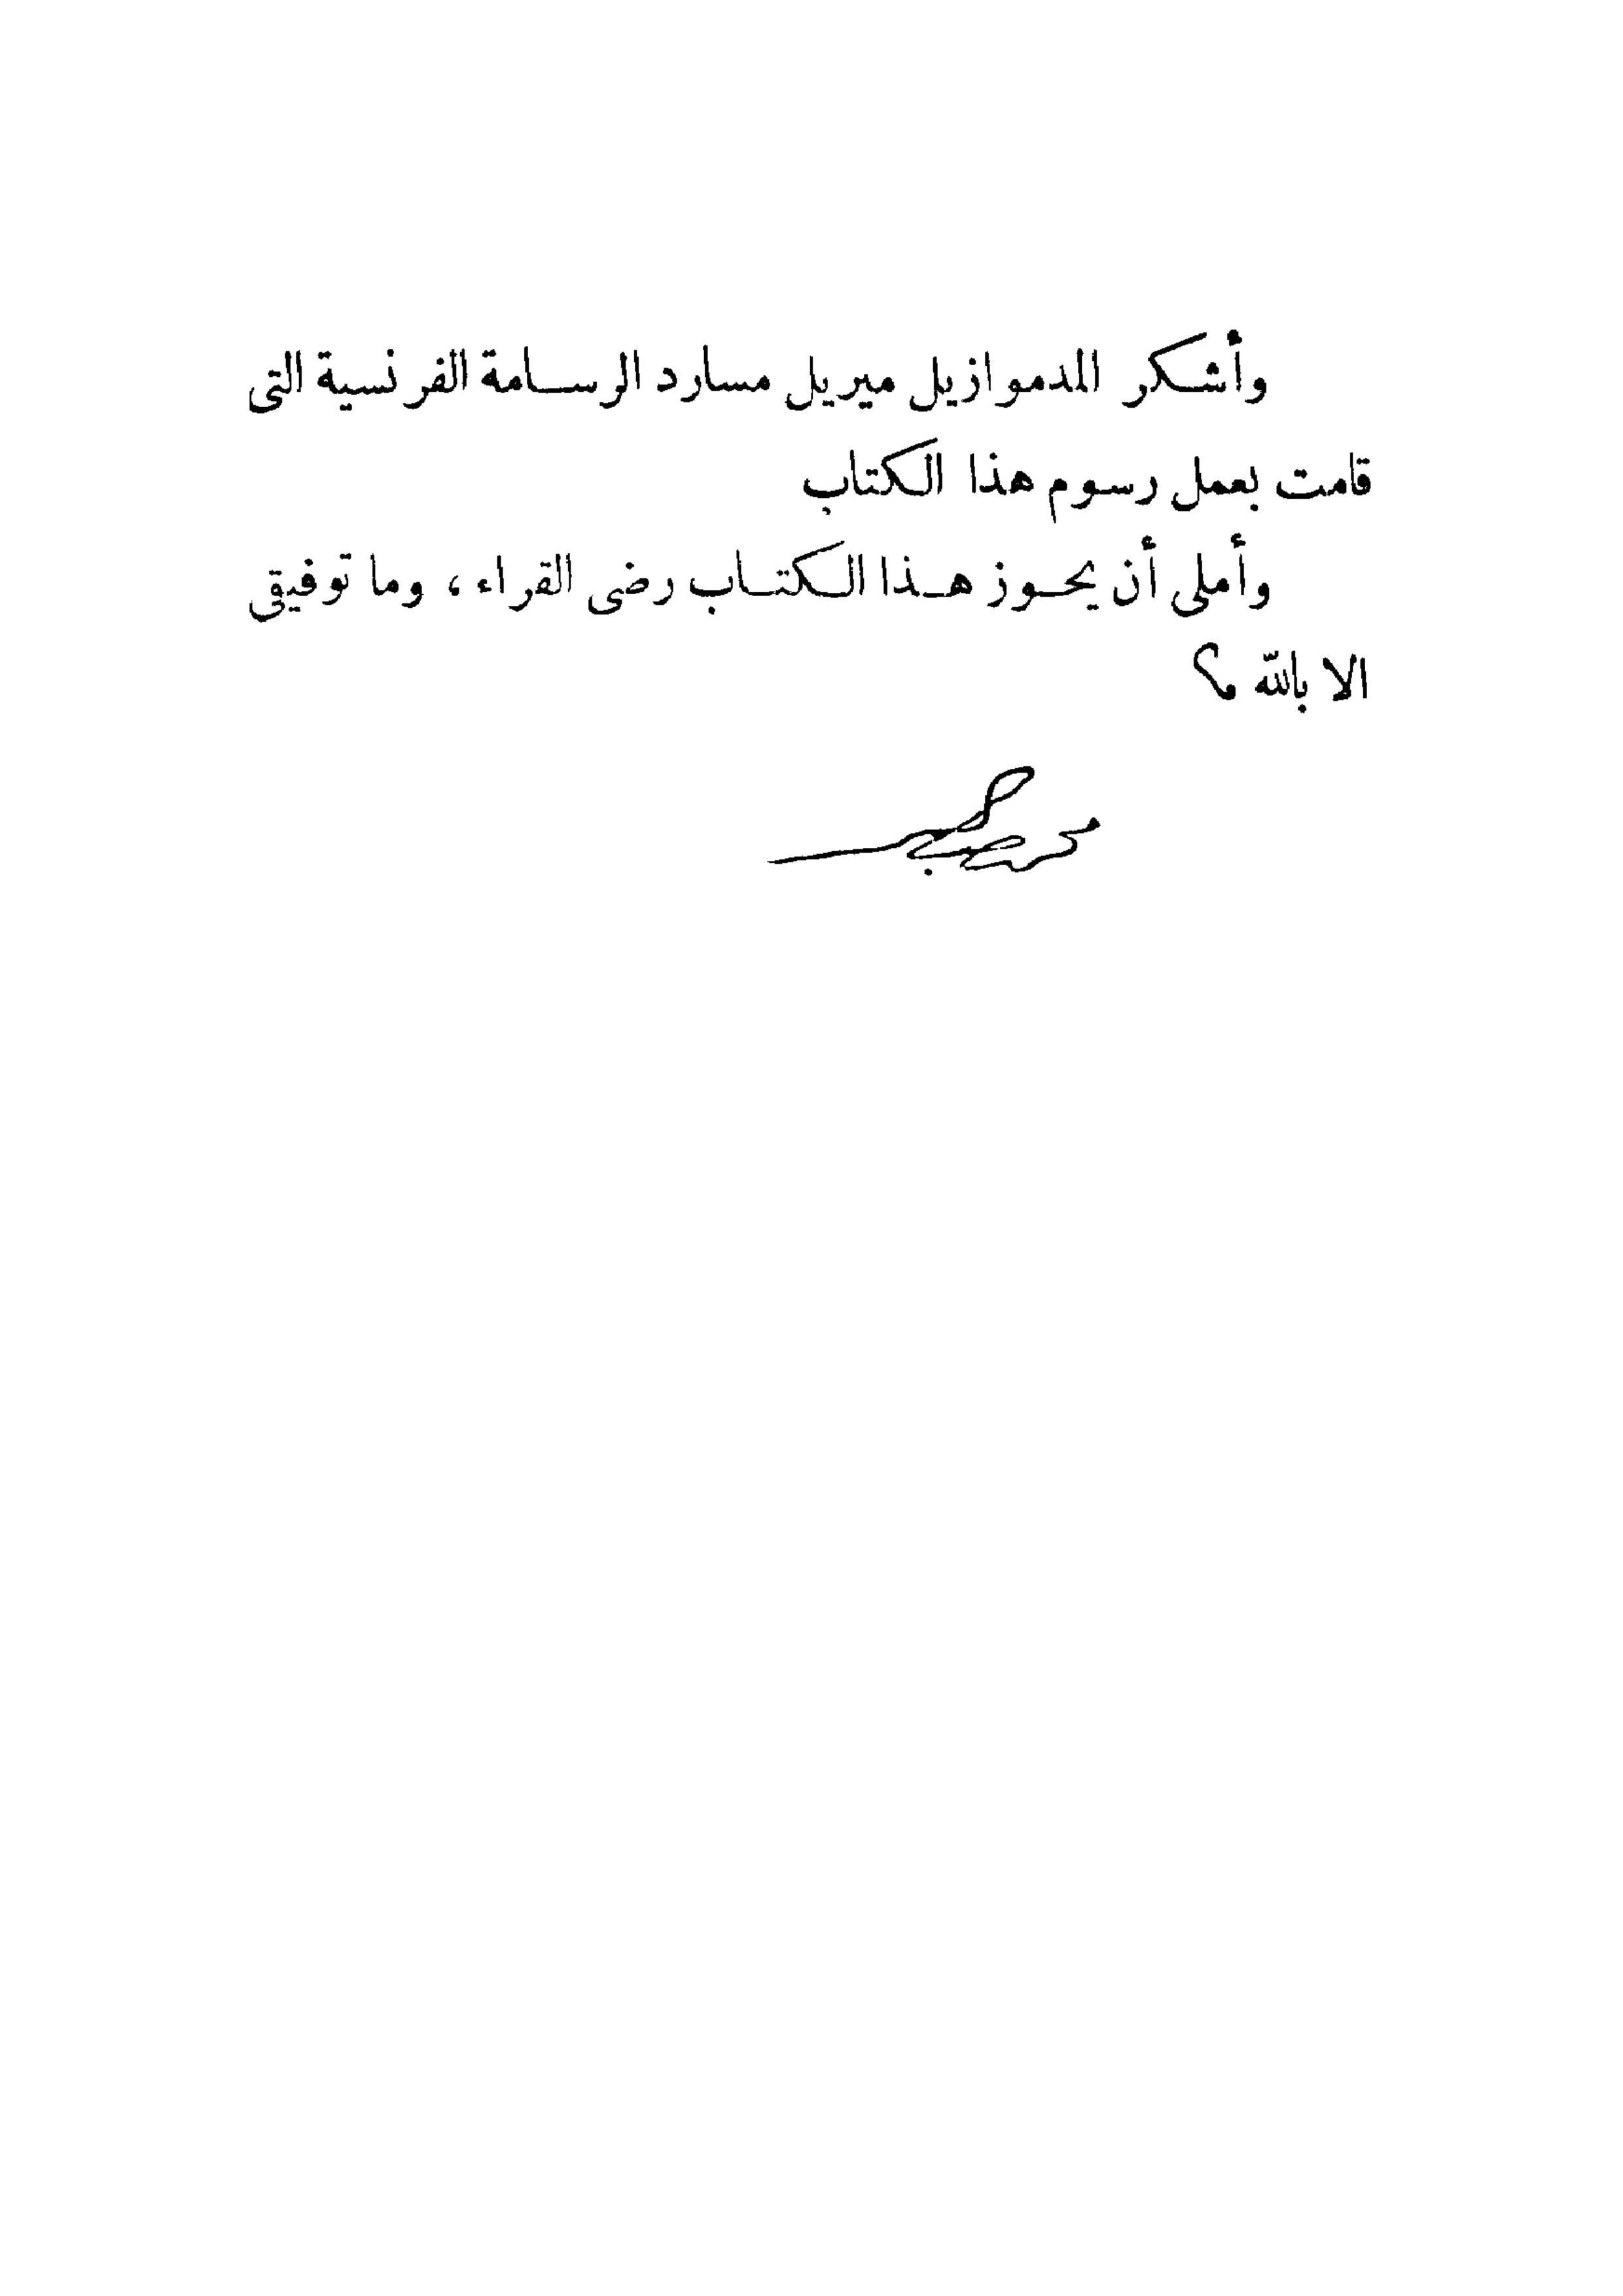 وأشكر المدموازيل ميريل مسارد الرسامة الفرنسية التى
قامت بعمل رسوم هذا الكتاب
وأملى أن يحوز هذا الكتاب رضى القراء ، وما توفيقى
الا بالله